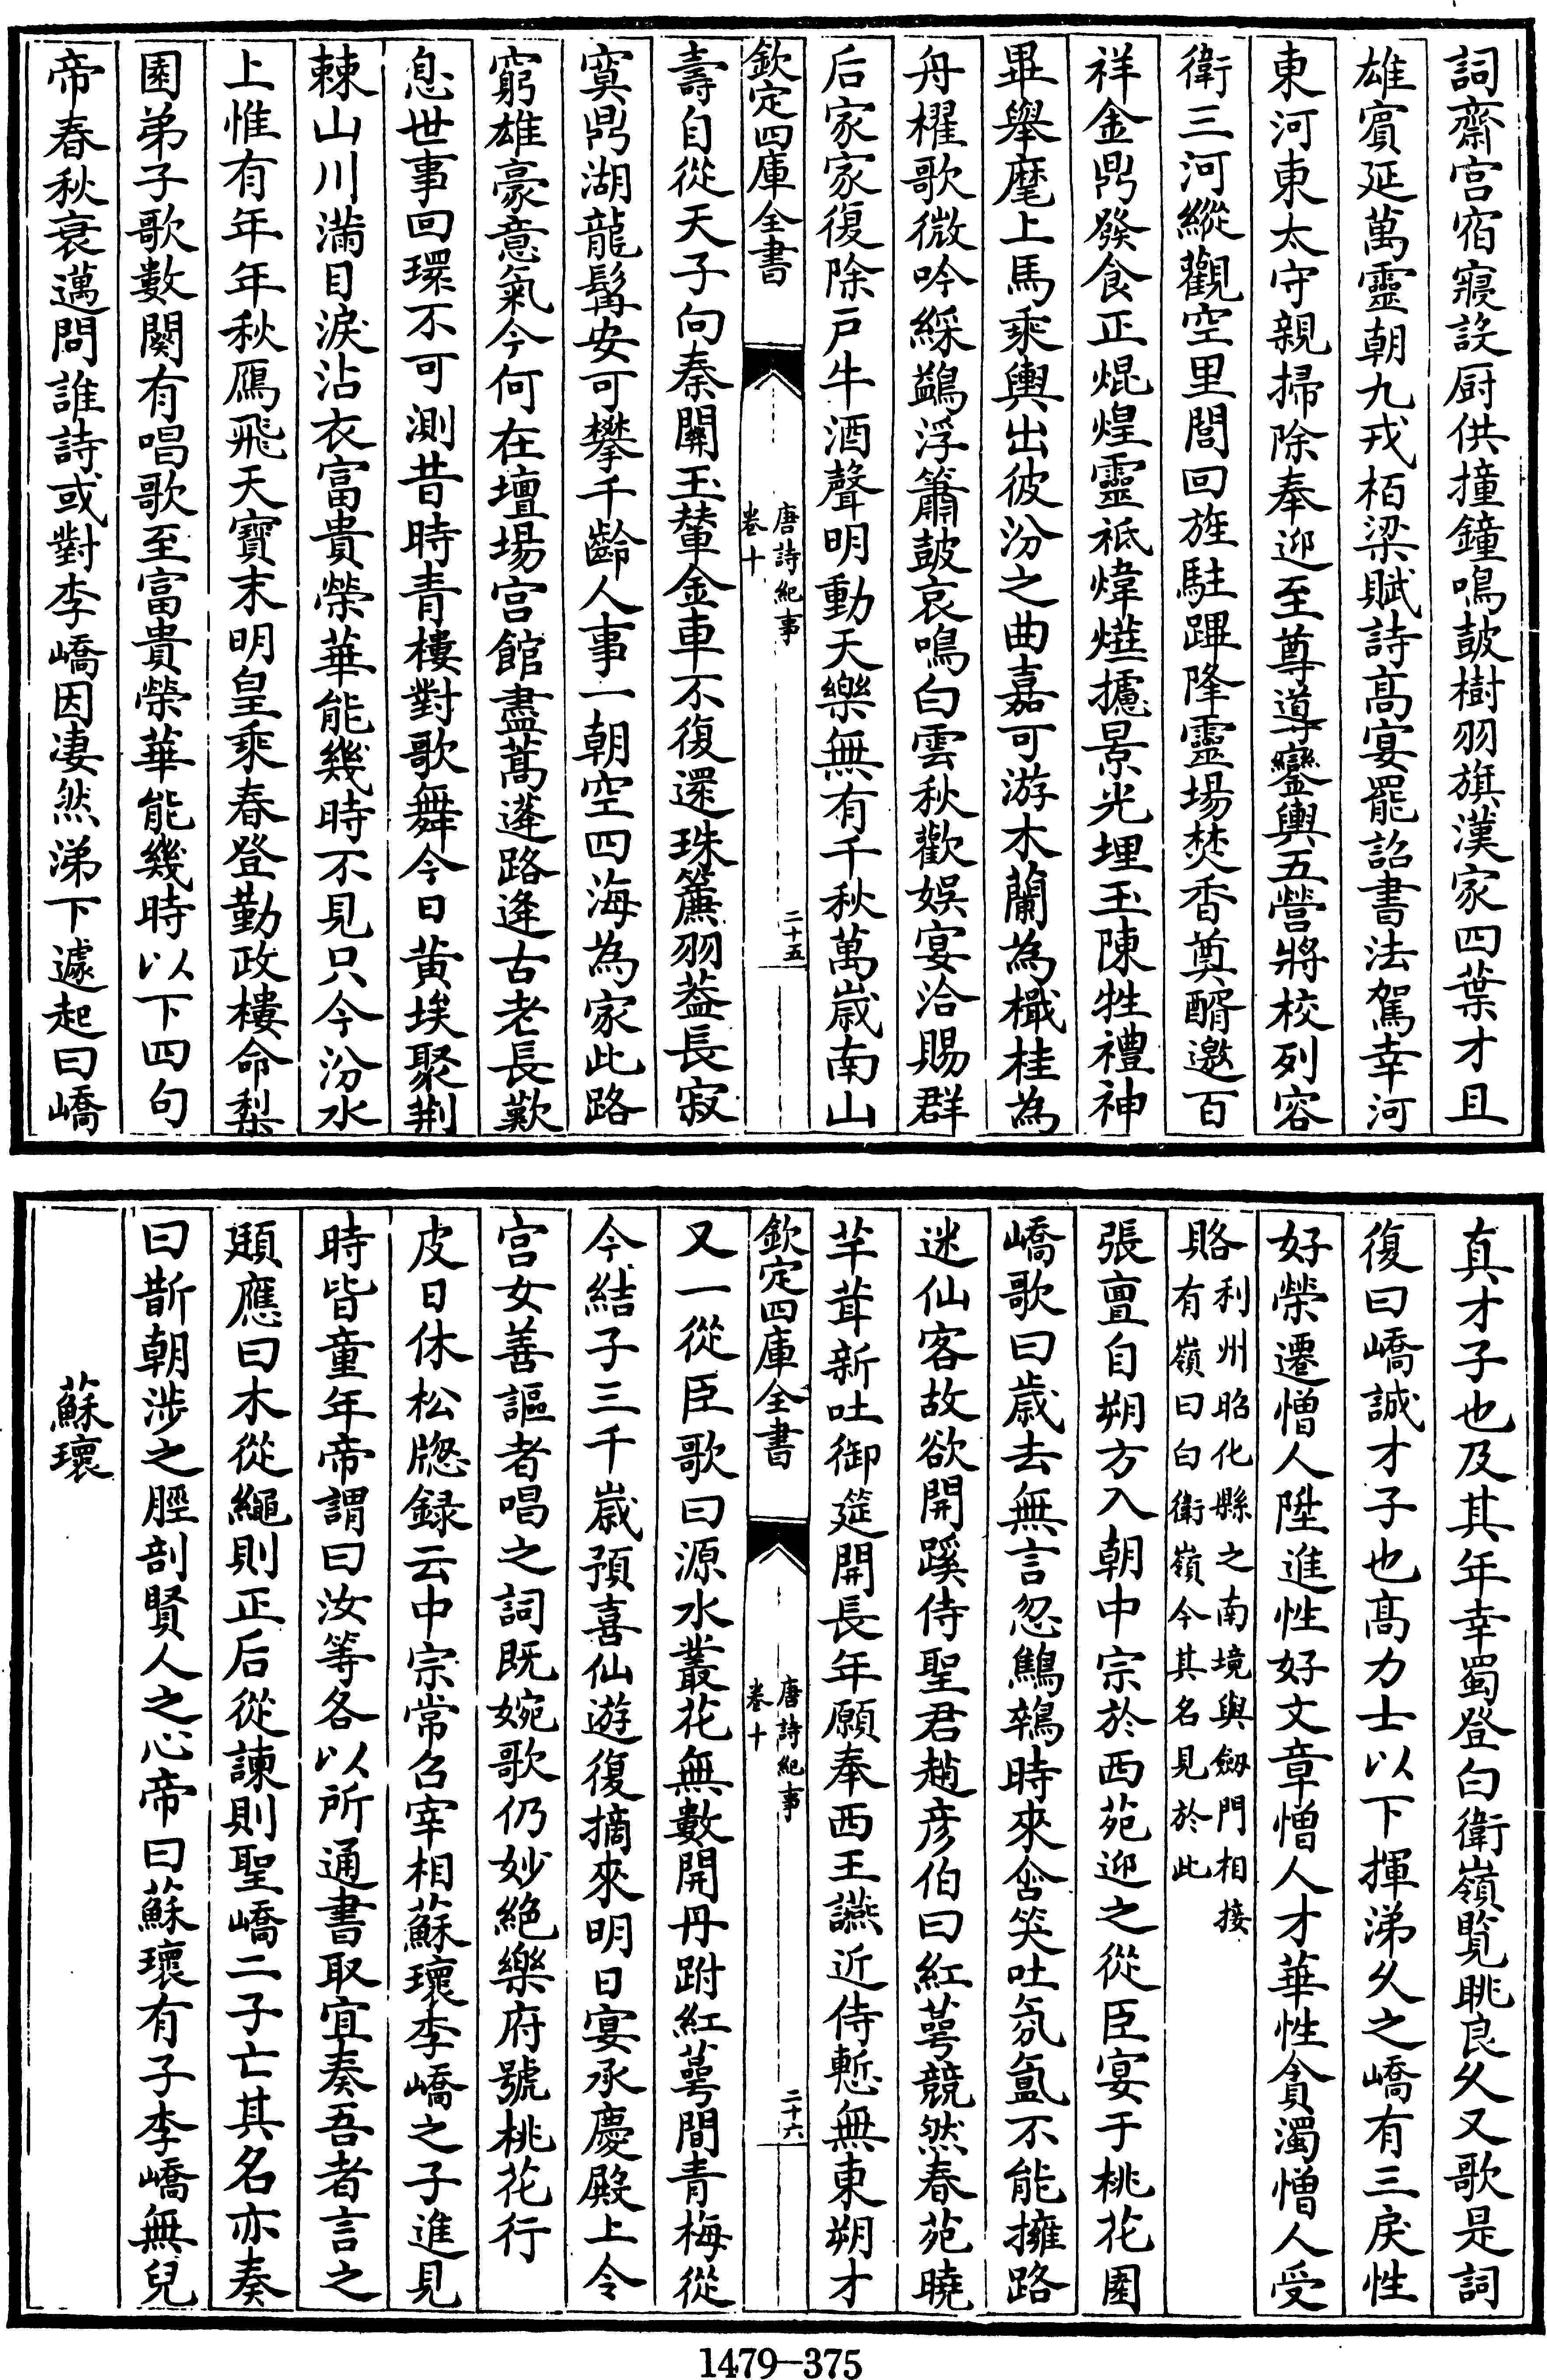 詞齋宫宿寢設厨供撞鐘鳴鼓樹羽旗漢家四葉才且
雄賔延萬靈朝九戎栢梁賦詩髙宴罷詔書法駕幸河
東河東太守親掃除奉迎至尊導鑾輿五營將校列容
衛三河縱觀空里閭回旌駐蹕降靈場焚香奠醑邀百
祥金鼎發食正焜煌靈祇煒燁攄景光埋玉陳牲禮神
畢舉麾上馬乘輿出彼汾之曲嘉可游木蘭為檝桂為
舟櫂歌微吟綵鷁浮簫鼓哀鳴白雲秋歡娛宴洽賜群
后家家復除戸牛酒聲明動天樂無有千秋萬歳南山
欽定四庫全書
唐詩紀事
卷十
二十五
壽自從天子向秦關玉輦金車不復還珠簾羽葢長寂
寞鼎湖龍髯安可攀千齡人事一朝空四海為家此路
窮雄豪意氣今何在壇場宫館盡蒿蓬路逢古老長歎
息世事回環不可測昔時青樓對歌舞今日黄埃聚荆
棘山川滿目淚沾衣富貴榮華能幾時不見只今汾水
上惟有年年秋鴈飛天寳末明皇乘春登勤政樓命梨
園弟子歌數闋有唱歌至富貴榮華能幾時以下四句
帝春秋衰邁問誰詩或對李嶠因凄然涕下遽起曰嶠
真才子也及其年幸蜀登白衛嶺覧眺良久又歌是詞
復曰嶠誠才子也髙力士以下揮涕久之嶠有三戾性
好榮遷憎人陞進性好文章憎人才華性貪濁憎人受
賂利州昭化縣之南境與劔門相接
有嶺曰白衛嶺今其名見於此
張亶自朔方入朝中宗於西苑迎之從臣宴于桃花園
嶠歌曰歳去無言忽鷦鷯時來含笑吐氛氲不能擁路
迷仙客故欲開蹊侍聖君趙彦伯曰紅萼競然春苑曉
芊茸新吐御筵開長年願奉西王讌近侍慙無東朔才
欽定四庫全書
唐詩紀事
卷十
二十六
又一從臣歌曰源水叢花無數開丹跗紅萼間青梅從
今結子三千歳預喜仙遊復摘來明日宴承慶殿上令
宫女善謳者唱之詞既婉歌仍妙絶樂府號桃花行
皮日休松牎録云中宗常召宰相蘇瓌李嶠之子進見
時皆童年帝謂曰汝等各以所通書取宜奏吾者言之
頲應曰木從繩則正后從諫則聖嶠二子亡其名亦奏
曰斮朝涉之脛剖賢人之心帝曰蘇瓌有子李嶠無兒
蘇瓌
1479—375